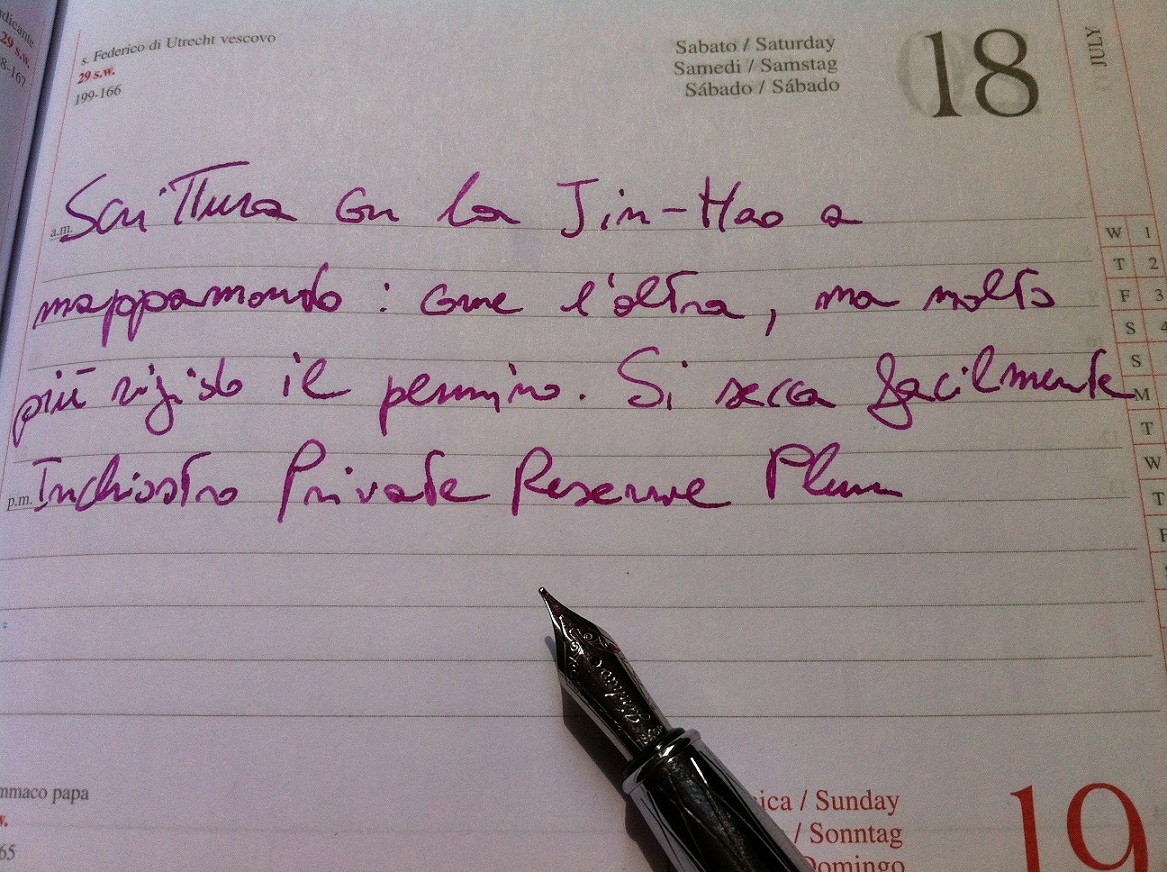 s. Federico di Utrecht vescovo
29 s.w.
199-166
Sabato / Saturday
Samedi / Samstag
Sábado / Sábado
18
JULY
Scrittura con la Jin-Hao a
a.m.
mappamondo: come l'altra, ma molto
più rigido il pennino. Si secca facilmente
p.m. Inchiostro Private Reserve Plum
W 1
T 2
F 3
S 4
S
M
T
W
T
F
Jinhao
mmaco papa
65
ica / Sunday
/ Sonntag
Domingo
19
dicante
29 s.w.
8-167